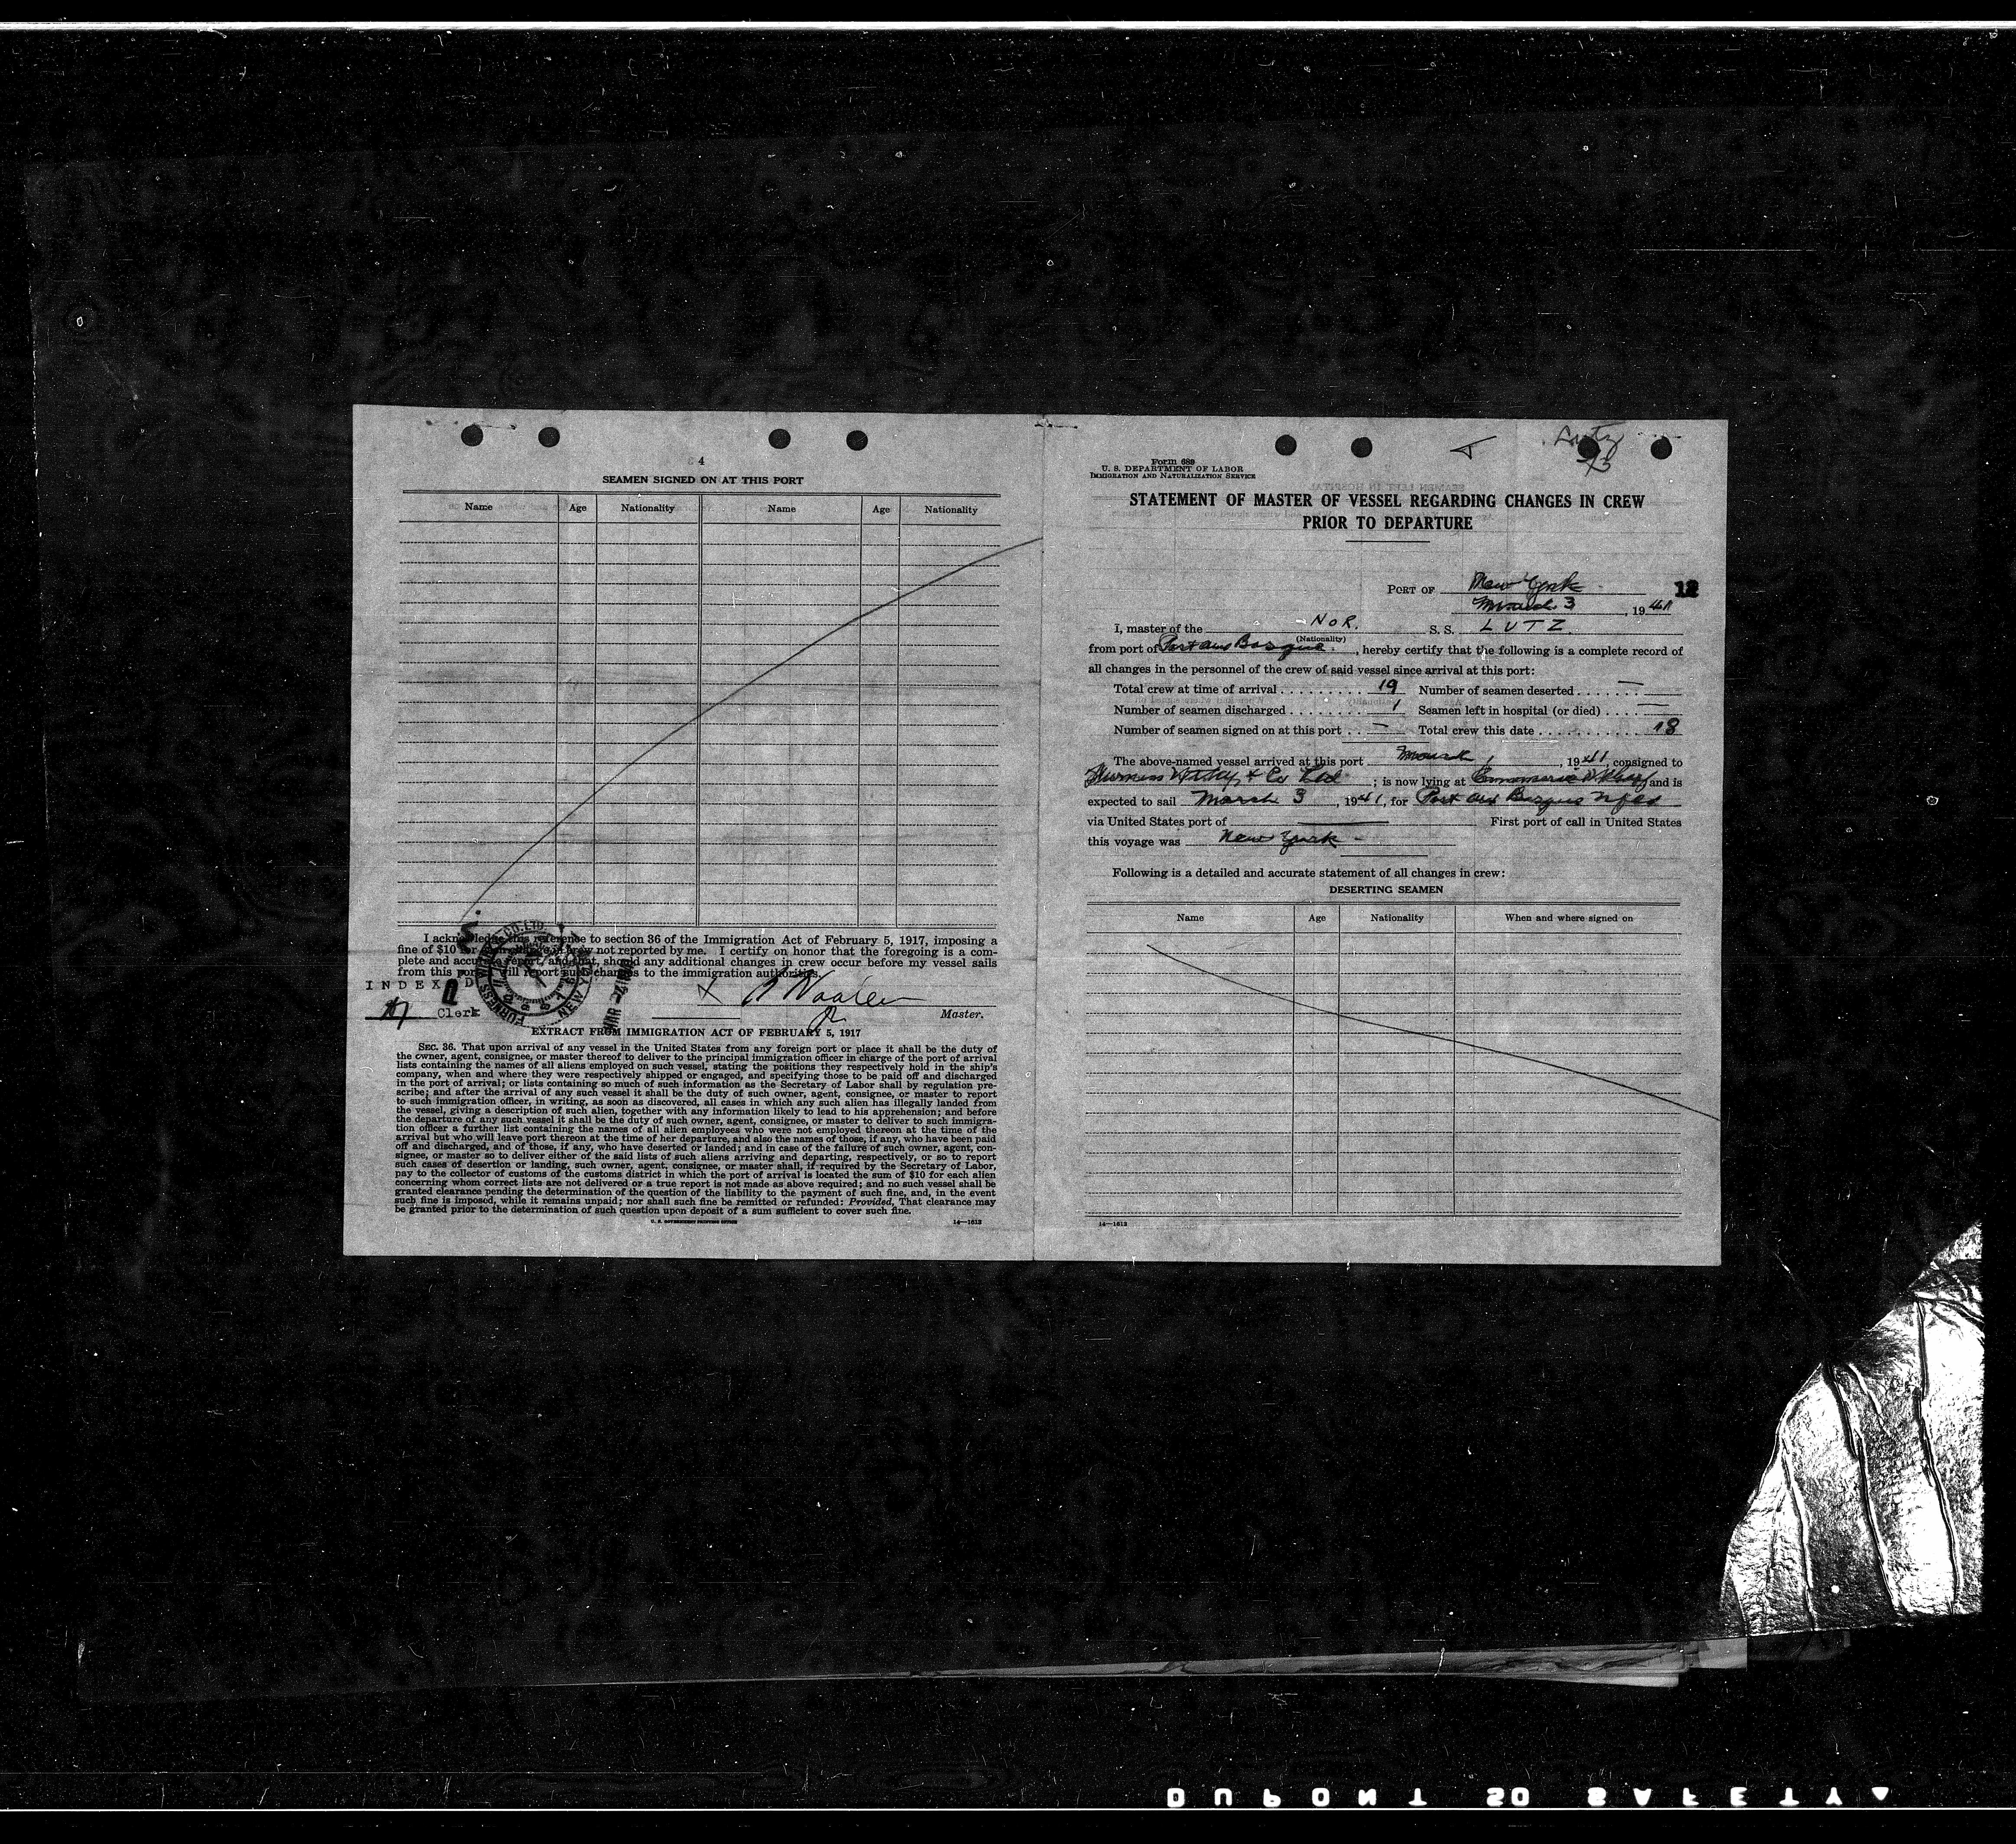 4
SEAMEN SIGNED ON AT THIS PORT
Name Age Nationality Name Age Nationality
I acknowledge this reference to section 36 of the Immigration Act of February 5, 1917, imposing a
fine of $10 for each change in crew not reported by me. I certify on honor that the foregoing is a com-
plete and accurate report, and that, should any additional changes in crew occur before my vessel sails
from this port I will report such changes to the immigration authorities.
INDEXED
Clerk
FURNESS CO. LTD. NEW YORK
Master.
EXTRACT FROM IMMIGRATION ACT OF FEBRUARY 5, 1917
SEC. 36. That upon arrival of any vessel in the United States from any foreign port or place it shall be the duty of
the owner, agent, consignee, or master thereof to deliver to the principal immigration officer in charge of the port of arrival
lists containing the names of all aliens employed on such vessel, stating the positions they respectively hold in the ship's
company, when and where they were respectively shipped or engaged, and specifying those to be paid off and discharged
in the port of arrival; or lists containing so much of such information as the Secretary of Labor shall by regulation pre-
scribe; and after the arrival of any such vessel it shall be the duty of such owner, agent, consignee, or master to report
to such immigration officer, in writing, as soon as discovered, all cases in which any such alien has illegally landed from
the vessel, giving a description of such alien, together with any information likely to lead to his apprehension; and before
the departure of any such vessel it shall be the duty of such owner, agent, consignee, or master to deliver to such immigra-
tion officer a further list containing the names of all alien employees who were not employed thereon at the time of the
arrival but who will leave port thereon at the time of her departure, and also the names of those, if any, who have been paid
off and discharged, and of those, if any, who have deserted or landed; and in case of the failure of such owner, agent, con-
signee, or master so to deliver either of the said lists of such aliens arriving and departing, respectively, or so to report
such cases of desertion or landing, such owner, agent, consignee, or master shall, if required by the Secretary of Labor,
pay to the collector of customs of the customs district in which the port of arrival is located the sum of $10 for each alien
concerning whom correct lists are not delivered or a true report is not made as above required; and no such vessel shall be
granted clearance pending the determination of the question of the liability to the payment of such fine, and, in the event
such fine is imposed, while it remains unpaid; nor shall such fine be remitted or refunded: Provided, That clearance may
be granted prior to the determination of such question upon deposit of a sum sufficient to cover such fine.
U. S. GOVERNMENT PRINTING OFFICE 14—1613
Lutz
Form 689
U. S. DEPARTMENT OF LABOR
IMMIGRATION AND NATURALIZATION SERVICE
STATEMENT OF MASTER OF VESSEL REGARDING CHANGES IN CREW
PRIOR TO DEPARTURE
PORT OF New York 12
March 3, 1941
I, master of the NOR. S. S. LUTZ
(Nationality)
from port of Port aux Basque, hereby certify that the following is a complete record of
all changes in the personnel of the crew of said vessel since arrival at this port:
Total crew at time of arrival 19 Number of seamen deserted —
Number of seamen discharged 1 Seamen left in hospital (or died) —
Number of seamen signed on at this port — Total crew this date 18
The above-named vessel arrived at this port March 1, 1941, consigned to
Furness Withy & Co Ltd; is now lying at Commercial Wharf and is
expected to sail March 3, 1941, for Port aux Basques Nfld
via United States port of — First port of call in United States
this voyage was New York -
Following is a detailed and accurate statement of all changes in crew:
DESERTING SEAMEN
Name Age Nationality When and where signed on
14—1613
DUPONT SO SAFETY